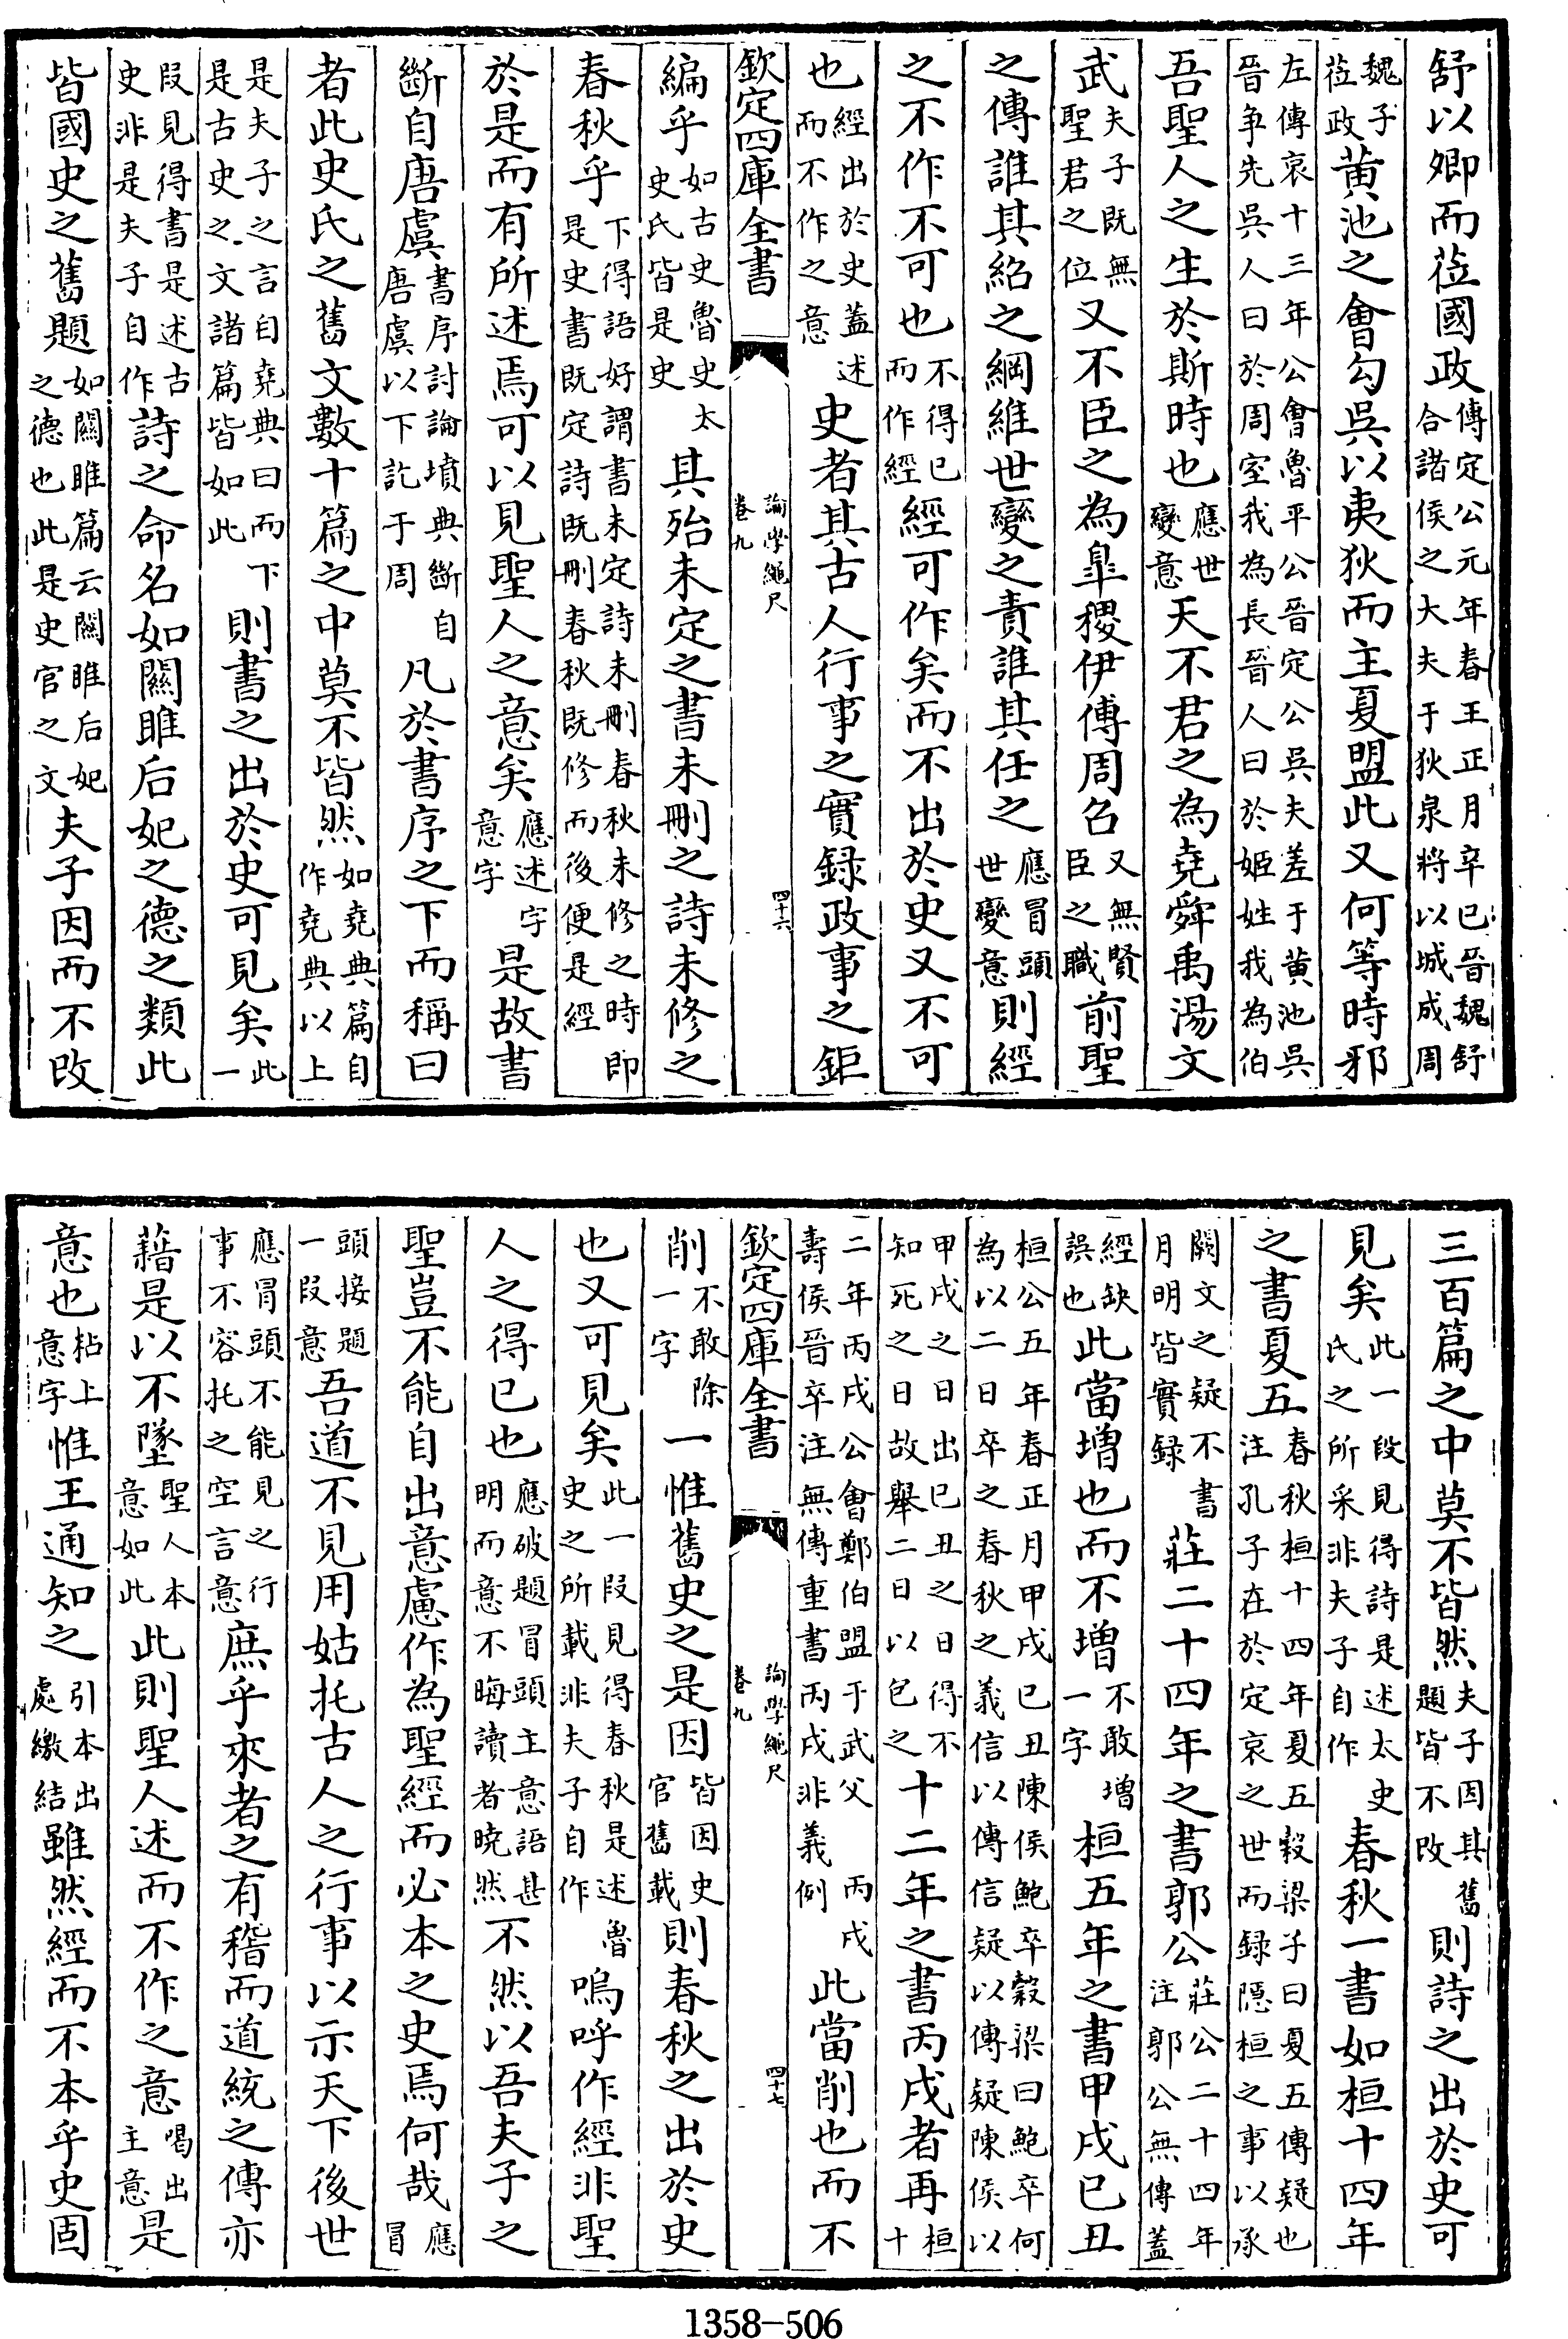 舒以卿而蒞國政傳定公元年春王正月辛巳晉魏舒合諸侯之大夫于狄泉將以城成周
魏子蒞政黃池之會勾吳以夷狄而主夏盟此又何等時邪
左傳哀十三年公會魯平公晉定公吳夫差于黃池吳晉爭先吳人曰於周室我為長晉人曰於姬姓我為伯
吾聖人之生於斯時也應世變意天不君之為堯舜禹湯文
武夫子既無聖君之位又不臣之為臯稷伊傅周召又無賢臣之職前聖
之傳誰其紹之綱維世變之責誰其任之應冒頭世變意則經
之不作不可也不得已而作經經可作矣而不出於史又不可
也經出於史蓋述而不作之意史者其古人行事之實録政事之鉅
欽定四庫全書 論學繩尺 卷九 四十六
編乎如古史魯史太史氏皆是史其殆未定之書未刪之詩未修之
春秋乎下得語好謂書未定詩未刪春秋未修之時即是史書既定詩既刪春秋既修而後便是經
於是而有所述焉可以見聖人之意矣應述字意字是故書
斷自唐虞書序討論墳典斷自唐虞以下訖于周凡於書序之下而稱曰
者此史氏之舊文數十篇之中莫不皆然如堯典篇自作堯典以上
是夫子之言自堯典曰而下是古史之文諸篇皆如此則書之出於史可見矣此一
段見得書是述古史非是夫子自作詩之命名如闗雎后妃之德之類此
皆國史之舊題如闗雎篇云闗雎后妃之德也此是史官之文夫子因而不改
三百篇之中莫不皆然夫子因其舊題皆不改則詩之出於史可
見矣此一段見得詩是述太史氏之所采非夫子自作春秋一書如桓十四年
之書夏五春秋桓十四年夏五穀梁子曰夏五傳疑也注孔子在於定哀之世而録隱桓之事以承
闕文之疑不書月明皆實録莊二十四年之書郭公莊公二十四年注郭公無傳蓋
經缺誤也此當增也而不增不敢增一字桓五年之書甲戌已丑
桓公五年春正月甲戌已丑陳侯鮑卒穀梁曰鮑卒何為以二日卒之春秋之義信以傳信疑以傳疑陳侯以
甲戌之日出已丑之日得不知死之日故舉二日以包之十二年之書丙戌者再桓十
二年丙戌公會鄭伯盟于武父丙戌壽侯晉卒注無傳重書丙戌非義例此當削也而不
欽定四庫全書 論學繩尺 卷九 四十七
削不敢除一字一惟舊史之是因皆因史官舊載則春秋之出於史
也又可見矣此一段見得春秋是述魯史之所載非夫子自作嗚呼作經非聖
人之得已也應破題冒頭主意語甚明而意不晦讀者曉然不然以吾夫子之
聖豈不能自出意慮作為聖經而必本之史焉何哉應冒
頭接題一段意吾道不見用姑托古人之行事以示天下後世
應冒頭不能見之行事不容托之空言意庶乎來者之有稽而道統之傳亦
藉是以不墜聖人本意如此此則聖人述而不作之意喝出主意是
意也粘上意字惟王通知之引本出處繳結雖然經而不本乎史固
1358-506